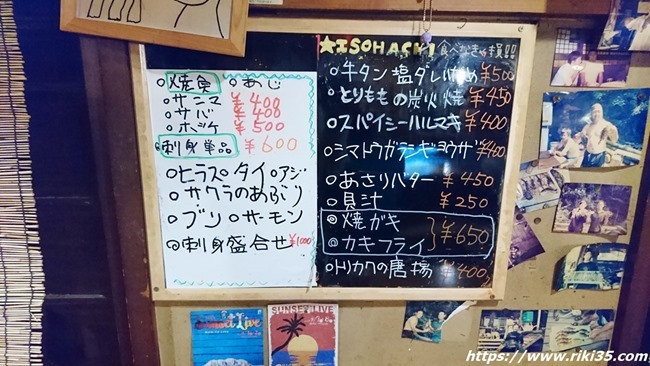 焼魚 ○あじ
○サンマ ¥408
○サバ ¥408
○ホッケ ¥500
刺身単品 ¥600
○ヒラス○タイ○アジ
○サクラのあぶり
○ブリ○サーモン
◎刺身盛合せ ¥1000
★ISOHACHI 食べなきゃ損!!
○牛タン塩ダレ炒め ¥500
○とりももの炭火焼 ¥450
○スパイシーハルマキ ¥400
○シマトウガラシギョウザ ¥400
○あさりバター ¥450
○貝汁 ¥250
◎焼ガキ
◎カキフライ }¥650
○トリカワの唐揚 ¥400
Sunset Live
SUNSET LIVE
https://www.riki35.com